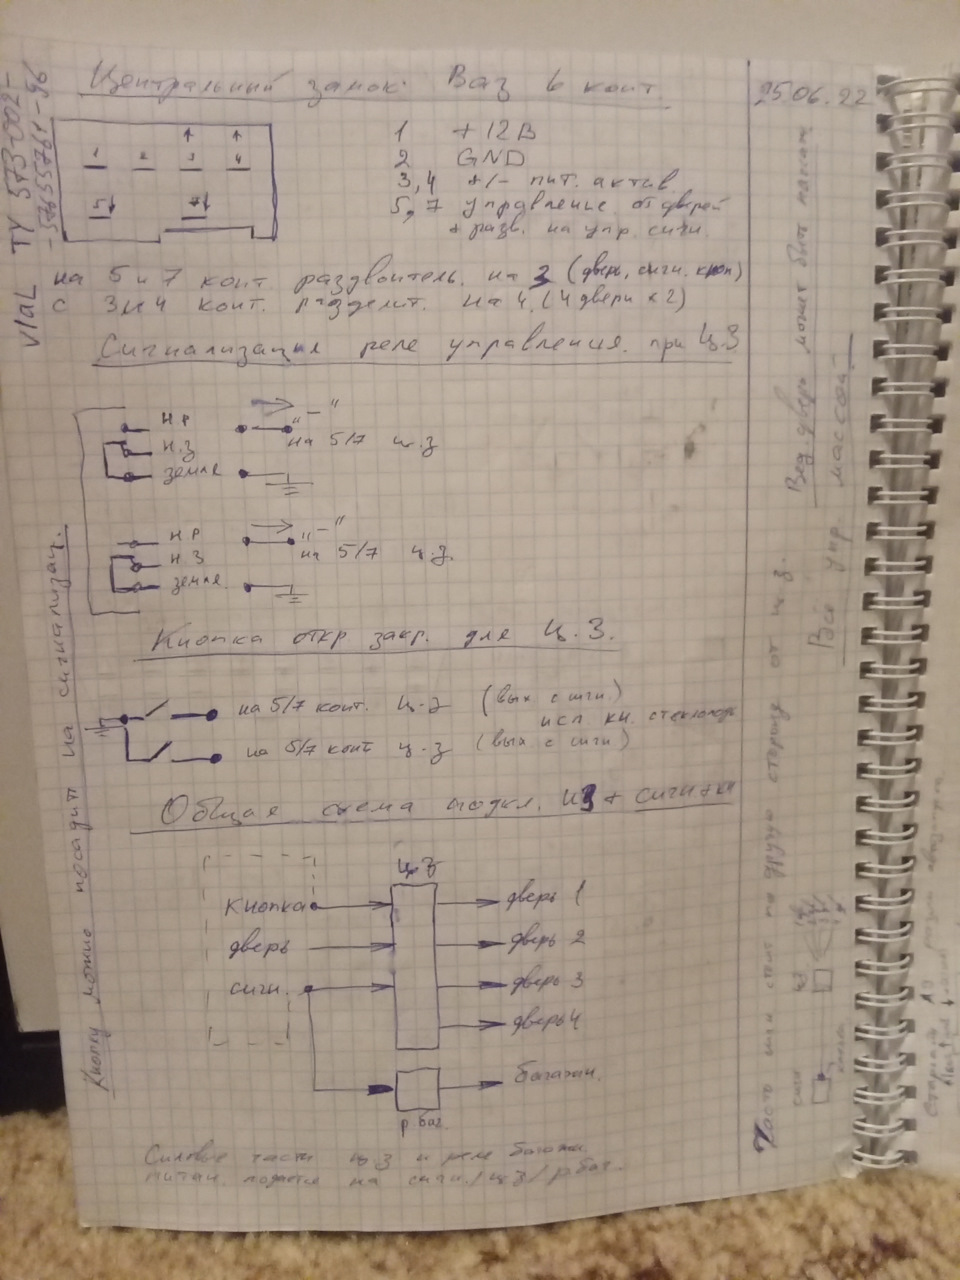 Центральный замок. Ваз 6 конт.
25.06.22
VIAL ТУ 573-002-
-57655761-96
1 2 3 4
5 7
1 +12В
2 GND
3,4 +/- пит. актив.
5,7 управление от дверей
+ разв. на упр. сигн.
на 5 и 7 конт раздвоитель. на 3 (дверь, сигн. кноп)
с 3 и 4 конт. разделит. на 4. (4 двери x 2)
Сигнализация реле управления. при Ц.З
н.р "-"
н.з на 5/7 ц.з
земля
н.р "-"
н.з на 5/7 ц.з
земля.
Кнопка откр закр. для Ц.З.
на 5/7 конт. ц.з (вых с сигн.)
исп. кн. стеклопод
на 5/7 конт ц.з (вых с сигн)
Общая схема подкл. ЦЗ + сигн+кн
ц.з
кнопка
дверь
сигн.
дверь 1
дверь 2
дверь 3
дверь 4
багажн.
р баг.
Силовые части ц.з и реле багажн.
питан. подается на сигн./ц.з/р баг.
Кнопку можно посадить на сигнализац.
Вед. дверь может быть
Все упр. массой
Часть на другую сторону от ц.з.